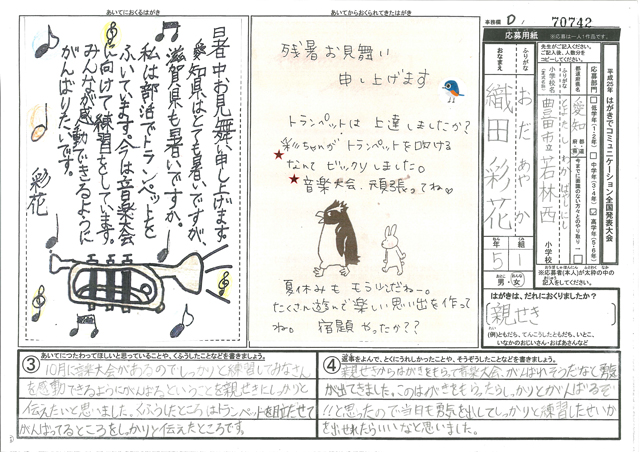 あいてにおくるはがき
暑中お見舞い申し上げます。
愛知県はとても暑いですが、
滋賀県も暑いですか。
私は部活でトランペットを
ふいています。今は音楽大会
に向けて練習をしています。
みんなが感動できるように
がんばりたいです。
彩花
あいてからおくられてきたはがき
残暑お見舞い
申し上げます
トランペットは上達しましたか?
彩ちゃんがトランペットを吹ける
なんてビックリしました。
音楽大会、頑張ってね
夏休みももう少しだねー。
たくさん遊んで楽しい思い出を作って
ね。 宿題やったか??
事務欄 D, 70742
応募用紙
※応募は一人1作品。
平成25年 はがきでコミュニケーション全国発表大会
先生がご記入ください。
ご記入後、人数分を
コピーしてください。
応募部門
低学年(1・2年)
中学年(3・4年)
高学年(5・6年)
都道府県名
愛知
今までに面識のない方々とのやり取り
ふりがな
小学校名
豊田市立若林西
小学校
※応募者(本人)が太枠の中の
記入をしてください。
ふりがな
おだ あやか
おなまえ
織田 彩花
年 組
5 1
男・女
はがきは、だれにおくりましたか?
親せき
(例)ともだち、てんこうしたともだち、いとこ、
いなかのおじいさん・おばあさんなど
③ あいてにつたわってほしいと思っていることや、くふうしたことなどを書きましょう。
10月に音楽大会があるのでしっかりと練習してみなさん
を感動できるようにがんばるということを親せきにしっかりと
伝えたいと思いました。くふうしたところはトランペットを目立たせて
がんばってるところをしっかりと伝えたところです。
④ 返事をよんで、とくにうれしかったことや、そうぞうしたことなどを書きましょう。
親せきからはがきをもらって音楽大会、がんばれそうだなと勇気
が出てきました。このはがきをもらったらしっかりとがんばるぞ
!!と思ったので当日も勇気を出してしっかりと練習したせいか
を出せれたらいいなと思いました。